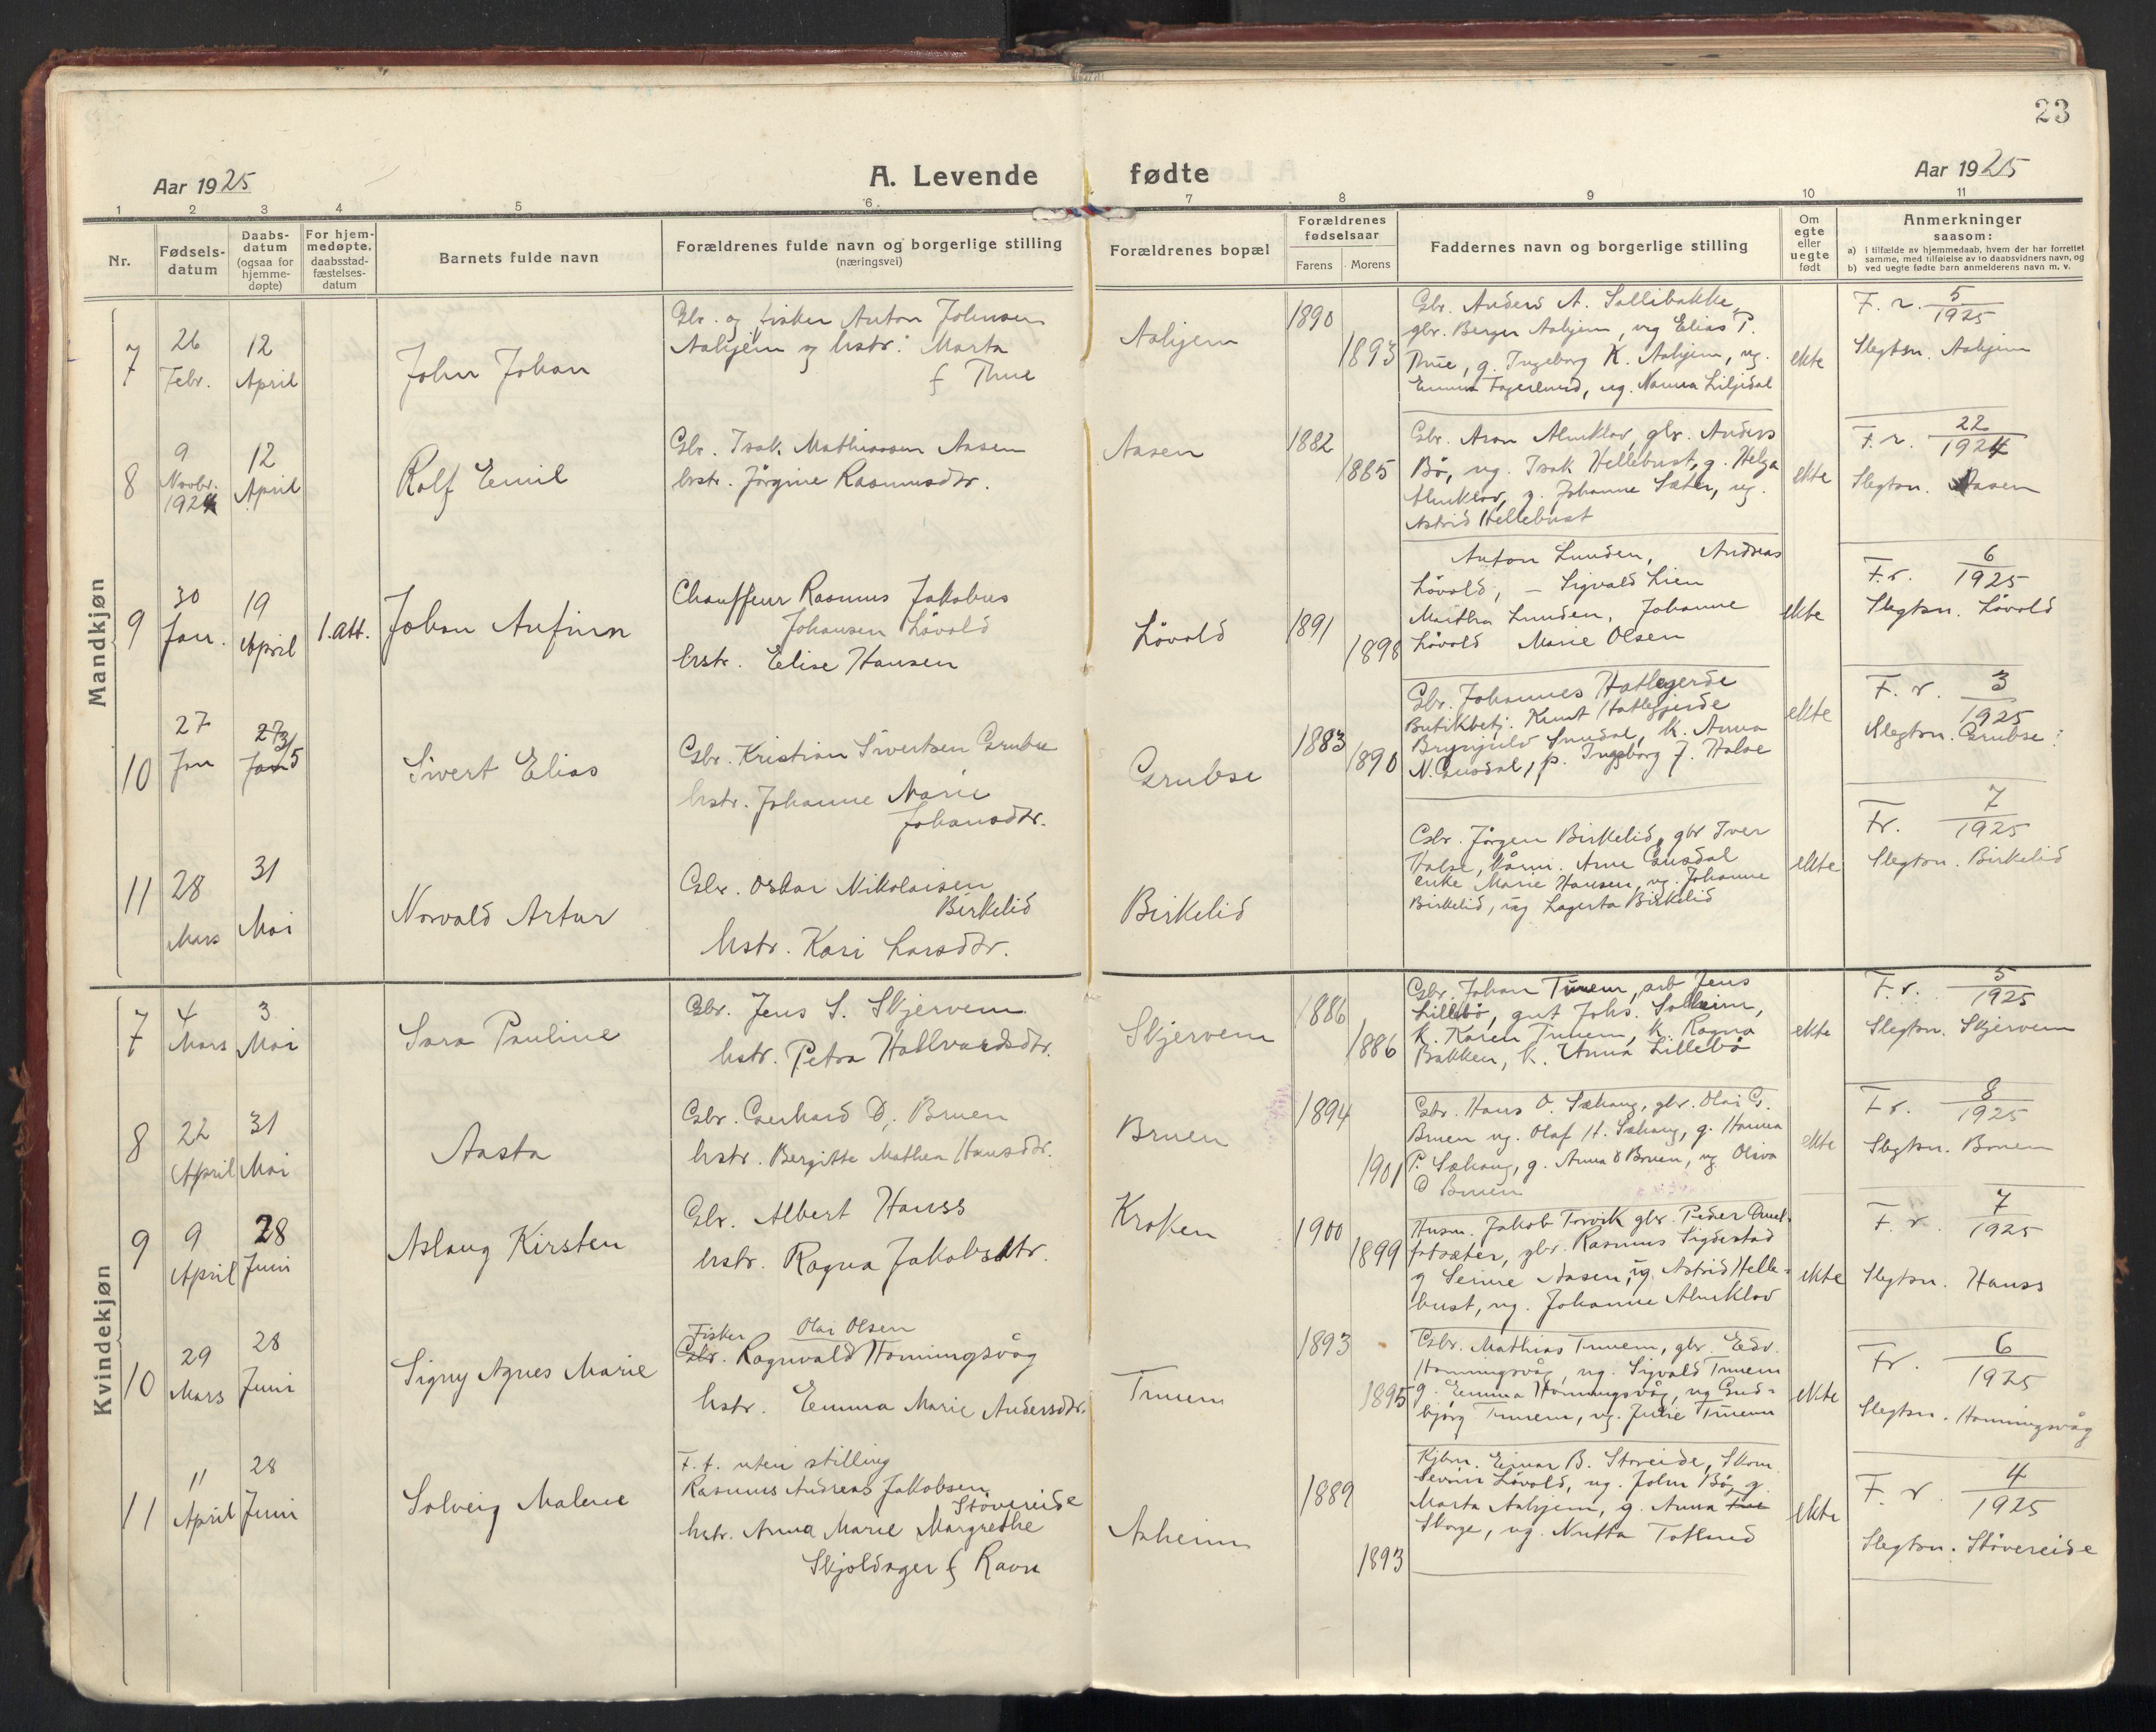 23
Aar 1925
A. Levende fødte
Aar 1925
1 2 3 4 5 6 7 8 9 10 11
Nr.
Fødsels-
datum
Daabs-
datum
(ogsaa for
hjemme-
døpte)
For hjem-
medøpte.
daabsstad-
fæstelses-
datum
Barnets fulde navn
Forældrenes fulde navn og borgerlige stilling
(næringsvei)
Forældrenes bopæl
Forældrenes
fødselsaar
Farens Morens
Faddernes navn og borgerlige stilling
Om
egte
eller
uegte
født
Anmerkninger
saasom:
a) i tilfælde av hjemmedaab, hvem der har forrettet
samme, med tilføielse av to daabsvidners navn, og
b) ved uegte fødte barn anmelderens navn m. v.
Mandkjøn
7
26
Febr.
12
April
John Johan
Gbr. og fisker Anton Johnsen
Aahjem og hstr. Marta
f Thue
Aahjem
1890
1893
Gbr. Anders A. Sollibakke,
gbr. Berger Aahjem, ug Elias P.
Thue, g. Ingeborg K. Aahjem, ug.
Emma Fagerlund, ug. Nanna Liljedal
ekte
F. r. 5
1925
Slegtsn. Aahjem
8
9
Novbr.
1924
12
April
Rolf Emil
Gbr. Isak Mathiassen Aasen
hstr. Jörgine Rasmusdtr.
Aasen
1882
1885
Gbr. Aron Almklov, gbr. Anders
Bö, ug. Isak Hellebust, g. Helga
Almklov, g. Johanne Sæter, ug.
Astrid Hellebust
ekte
F. r. 22
1924
Slegtsn. Aasen
9
30
Jan.
19
April
1. att.
Johan Anfinn
Chauffeur Rasmus Jakobus
Johansen Lövold
hstr. Elise Hansen
Lövold
1891
1898
Anton Lunden, Andreas
Lövold, – Sigvald Lien
Martha Lunden, Johanne
Lövold Marie Olsen
ekte
F. r. 6
1925
Slegtsn. Lövold
10
27
Jan
27
Jan
3/5
Sivert Elias
Gbr. Kristian Sivertsen Grubse
hstr. Johanne Marie
Johansdtr.
Grubse
1883
1890
Gbr. Johannes Hatlegjerde
Butikbetj. Knut Hatlegjerde
Brynjulv Gusdal, k. Anna
N. Gusdal, p. Ingeborg J. Halse
ekte
F. r. 3
1925
Slegtsn. Grubse
11
28
Mars
31
Mai
Norvald Artur
Gbr. Oskar Nikolaisen
Birkelid
hstr. Kari Larsdtr.
Birkelid
Gbr. Jörgen Birkelid, gbr Iver
Halse, Arne Gusdal
enke Marie Hansen, ug. Johanne
Birkelid, ug Lagerta Birkelid
ekte
Fr. 7
1925
Slegtsn. Birkelid
Kvindekjøn
7
4
Mars
3
Mai
Sara Pauline
Gbr. Jens S. Skjervem
hstr. Petra Hallvardsdtr.
Skjervem
1886
1886
Gbr. Johan Tunem, arb Jens
Lillebö, gut Johs. Solheim,
k. Karen Tunem, k. Ragna
Bakken, k. Anna Lillebö
ekte
F. r. 5
1925
Slegtsn. Skjervem
8
22
April
31
Mai
Aasta
Gbr. Gerhard D. Bruen
hstr. Bergitte Mathea Hansdtr.
Bruen
1894
1901
Gbr. Hans O. Sæhaug, gbr. Olai G.
Bruen ug. Olaf H. Sæhaug, g. Hanna
P. Sæhaug, g. Anna O Bruen, ug. Oliva
O Bruen
ekte
F. r. 8
1925
Slegtsn. Bruen
9
9
April
28
Juni
Aslaug Kirsten
Gbr. Albert Hauss
hstr. Ragna Jakobsdtr.
Kroken
1900
1899
Husm. Jakob Torvik gbr. Peder
gbr. Rasmus Sigdestad
g Senne Aasen, ug. Astrid Helle-
bust, ug. Johanne Almklov
ekte
F. r. 7
1925
Slegtsn. Hauss
10
29
Mars
28
Juni
Signy Agnes Marie
Fisker Olai Olsen
Gbr. Ragnvald Honningsvåg
hstr. Emma Marie Andersdtr.
Tunem
1893
1895
Gbr. Mathias Tunem, gbr. Edv.
Honningsvåg, ug. Sigvald Tunem
g. Emma Honningsvåg, ug Gud-
björg Tunem, ug. Julie Tunem
ekte
Fr. 6
1925
Slegtsn. Honningsvåg
11
11
April
28
Juni
Solveig Malene
F. f. uten stilling
Rasmus Andreas Jakobsen
Stövereide
hstr. Anna Marie Margrethe
Skjoldager f Ravn
Aaheim
1889
1893
Kjbm. Einar B. Storeide, Skom.
Severin Lövold, ug. John Bö, g.
Marta Aahjem, g. Anna
Skorge, ug. Nutta Totland
ekte
F. r. 4
1925
Slegtsn. Stövereide